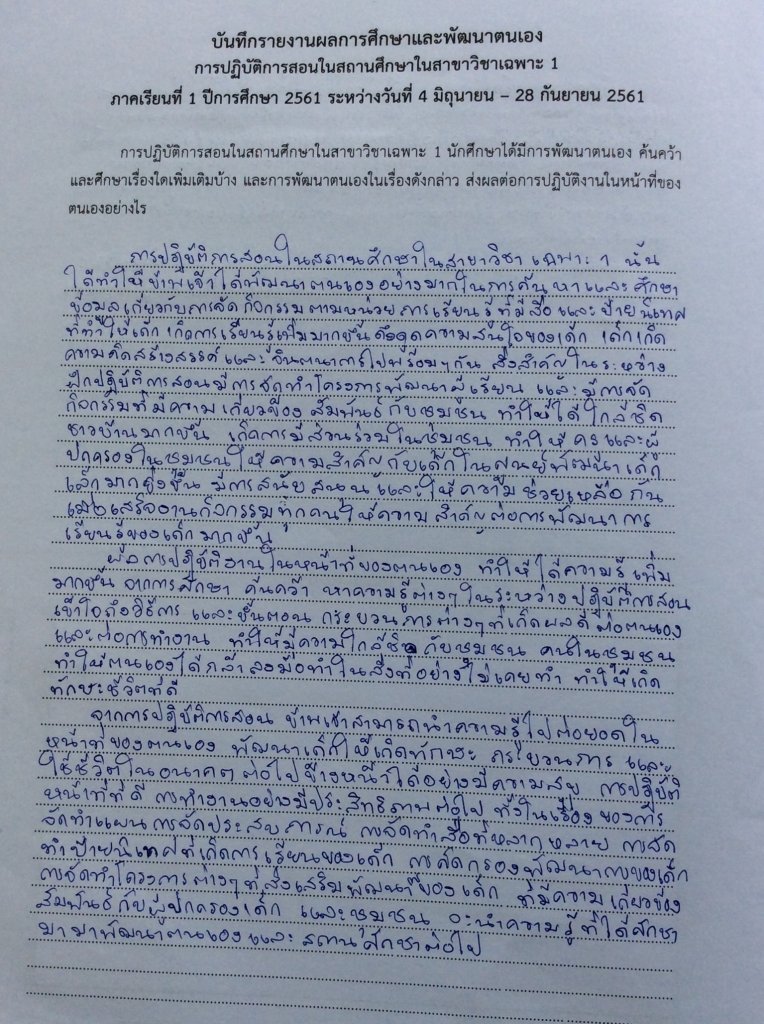 บันทึกรายงานผลการศึกษาและพัฒนาตนเอง
การปฏิบัติการสอนในสถานศึกษาในสาขาวิชาเฉพาะ 1
ภาคเรียนที่ 1 ปีการศึกษา 2561 ระหว่างวันที่ 4 มิถุนายน – 28 กันยายน 2561
การปฏิบัติการสอนในสถานศึกษาในสาขาวิชาเฉพาะ 1 นักศึกษาได้มีการพัฒนาตนเอง ค้นคว้า
และศึกษาเรื่องใดเพิ่มเติมบ้าง และการพัฒนาตนเองในเรื่องดังกล่าว ส่งผลต่อการปฏิบัติงานในหน้าที่ของ
ตนเองอย่างไร
การปฏิบัติการสอนในสถานศึกษาในสาขาวิชา เฉพาะ 1 นั้น
ได้ทำให้ข้าพเจ้าได้พัฒนาตนเองอย่างมากในการค้นหาและศึกษา
ข้อมูลเกี่ยวกับการจัดกิจกรรมตามหน่วยการเรียนรู้ที่มีสื่อและป้ายนิเทศ
ที่ทำให้เด็กเกิดการเรียนรู้เพิ่มมากขึ้นดึงดูดความสนใจของเด็ก เด็กเกิด
ความคิดสร้างสรรค์และจินตนาการไปพร้อมๆกัน สิ่งสำคัญในระหว่าง
ฝึกปฏิบัติการสอนมีการจัดทำโครงการพัฒนาผู้เรียน และมีการจัด
กิจกรรมที่มีความเกี่ยวข้อง สัมพันธ์กับชุมชน ทำให้ได้ใกล้ชิด
ชาวบ้านมากขึ้น เกิดการมีส่วนร่วมในชุมชน ทำให้ครูและผู้
ปกครองในชุมชนให้ความสำคัญกับเด็กในศูนย์พัฒนาเด็ก
เล็กมากยิ่งขึ้น มีการสนับสนุนและให้ความช่วยเหลือกัน
เมื่อเสร็จงานกิจกรรมทุกคนให้ความสำคัญต่อการพัฒนาการ
เรียนรู้ของเด็กมากขึ้น
ผลการปฏิบัติงานในหน้าที่ของตนเอง ทำให้ได้ความรู้เพิ่ม
มากขึ้น จากการศึกษา ค้นคว้า หาความรู้ต่างๆในระหว่างปฏิบัติการสอน
เข้าใจถึงวิธีการ และขั้นตอน กระบวนการต่างๆที่เกิดผลดีต่อตนเอง
และต่อการทำงาน ทำให้มีความใกล้ชิดกับชุมชน คนในชุมชน
ทำให้ตนเองได้กล้าลงมือทำในสิ่งที่อย่างไม่เคยทำ ทำให้เกิด
ทักษะชีวิตที่ดี
จากการปฏิบัติการสอน ข้าพเจ้าสามารถนำความรู้ไปต่อยอดใน
หน้าที่ของตนเอง พัฒนาเด็กให้เกิดทักษะ กระบวนการ และ
ใช้ชีวิตในอนาคตต่อไปข้างหน้าได้อย่างมีความสุข การปฏิบัติ
หน้าที่ที่ดี การทำงานอย่างมีประสิทธิภาพต่อไป ทั้งในเรื่องของการ
จัดทำแผนการจัดประสบการณ์ การจัดทำสื่อที่หลากหลาย การจัด
ทำป้ายนิเทศที่เกิดการเรียนของเด็ก การคัดกรองพัฒนาการของเด็ก
การจัดทำโครงการต่างๆที่ส่งเสริมพัฒนาของเด็ก ที่มีความเกี่ยวข้อง
สัมพันธ์กับผู้ปกครองเด็ก และชุมชน จะนำความรู้ที่ได้ศึกษา
มาพัฒนาตนเองและสถานศึกษาต่อไป